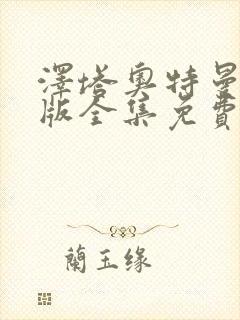 澤塔奧特曼
版全集免費
蘭玉缘